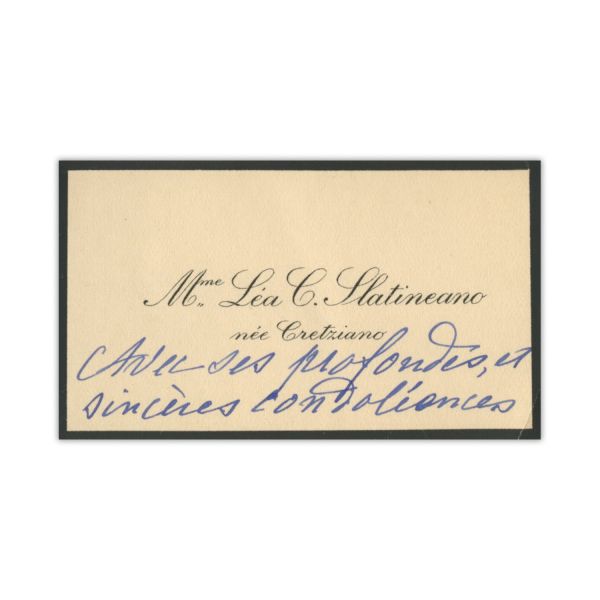 Mme Léa C. Slatineano
née Cretziano
Avec ses profondes, et
sincères condoléances